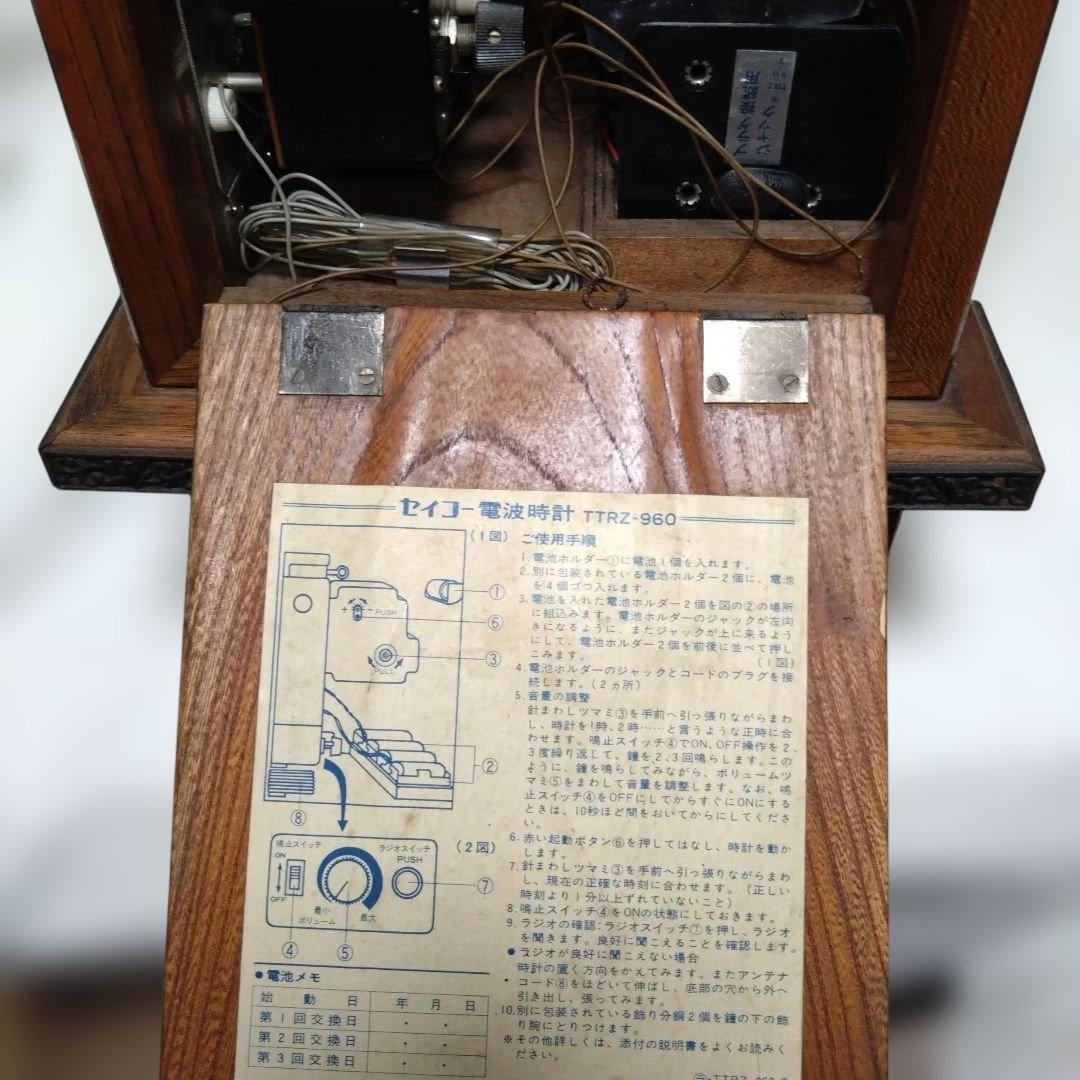 プラス接続用
ジャック
セイコー電波時計 TTRZ-960
(1図)
ご使用手順
1 電池ホルダー①に電池1個を入れます。
2. 別に包装されている電池ホルダー2個に、電池
を4個づつ入れます。
3. 電池を入れた電池ホルダー2個を図の②の場所
に組込みます。電池ホルダーのジャックが左向
きになるように、またジャックが上に来るよう
にして、電池ホルダー2個を前後に並べて押し
こみます。 (1図)
4. 電池ホルダーのジャックとコードのプラグを接
続します。(2ヵ所)
5. 音量の調整
針まわしツマミ③を手前へ引っ張りながらまわ
し、時計を1時、2時……と言うような正時に合
わせます。鳴止スイッチ④でON、OFF操作を2、
3度繰り返して、鐘を2、3回鳴らします。この
ように、鐘を鳴らしてみながら、ボリュームツ
マミ⑤をまわして音量を調整します。なお、鳴
止スイッチ④をOFFにしてからすぐにONにする
ときは、10秒ほど間をおいてからにしてくださ
い。
6. 赤い起動ボタン⑥を押してはなし、時計を動か
します。
7. 針まわしツマミ③を手前へ引っ張りながらまわ
し、現在の正確な時刻に合わせます。(正しい
時刻より1分以上ずれていないこと)
8. 鳴止スイッチ④をONの状態にしておきます。
9. ラジオの確認:ラジオスイッチ⑦を押し、ラジオ
を聞きます。良好に聞こえることを確認します。
●ラジオが良好に聞こえない場合
時計の置く方向をかえてみます。またアンテナ
コード⑧をほどいて伸ばし、底部の穴から外へ
引き出し、張ってみます。
10. 別に包装されている飾り分銅2個を鐘の下の飾
り腕にとりつけます。
※その他詳しくは、添付の説明書をよくお読みく
ださい。
+ - PUSH
PULL
①
⑥
③
②
⑧
(2図)
鳴止スイッチ
ON
OFF
ラジオスイッチ
PUSH
最小
最大
ボリューム
④
⑤
⑦
●電池メモ
始動日 年 月 日
第1回交換日 ・ ・
第2回交換日 ・ ・
第3回交換日 ・ ・